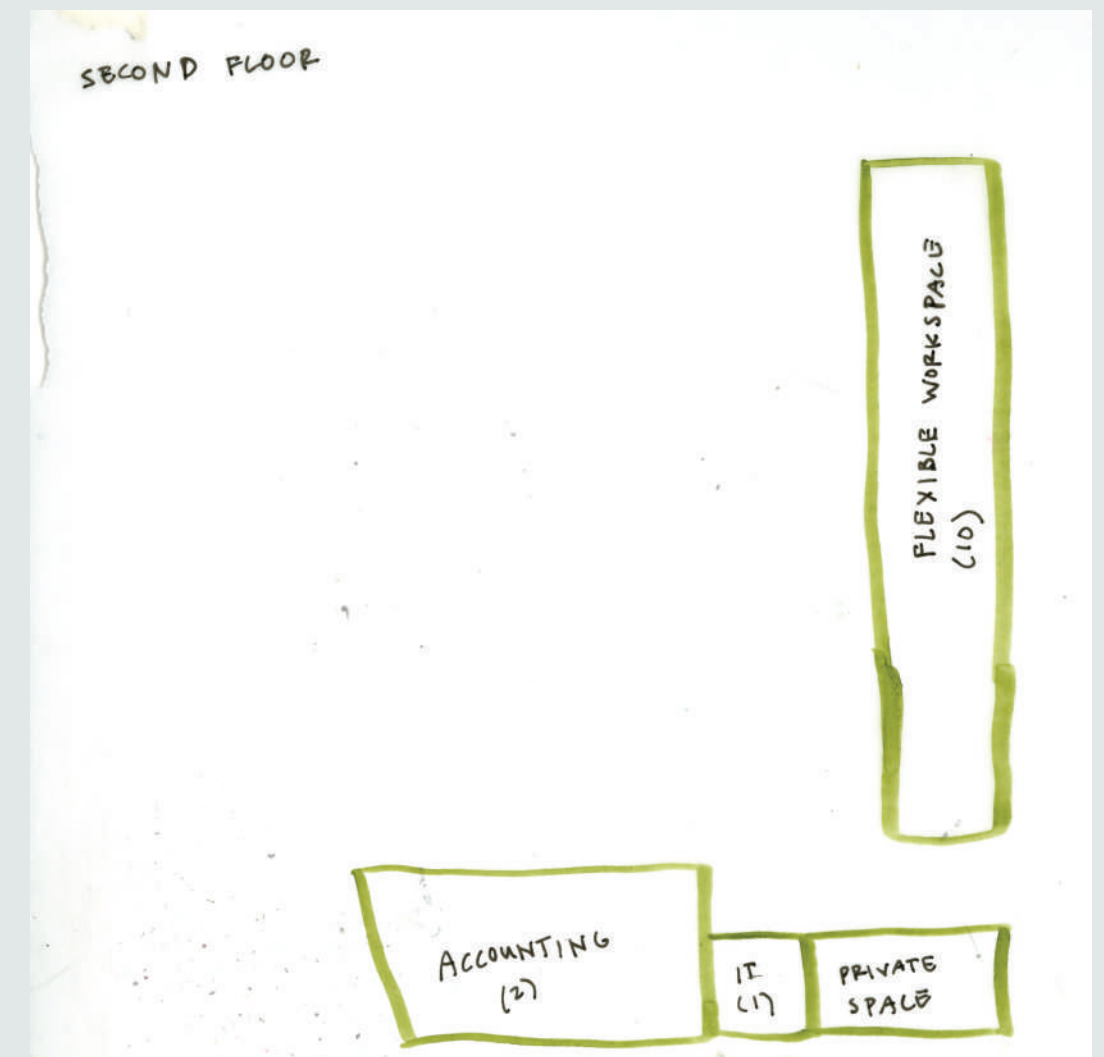 SECOND FLOOR
FLEXIBLE WORKSPACE
(10)
ACCOUNTING
(2)
IT
(1)
PRIVATE
SPACE